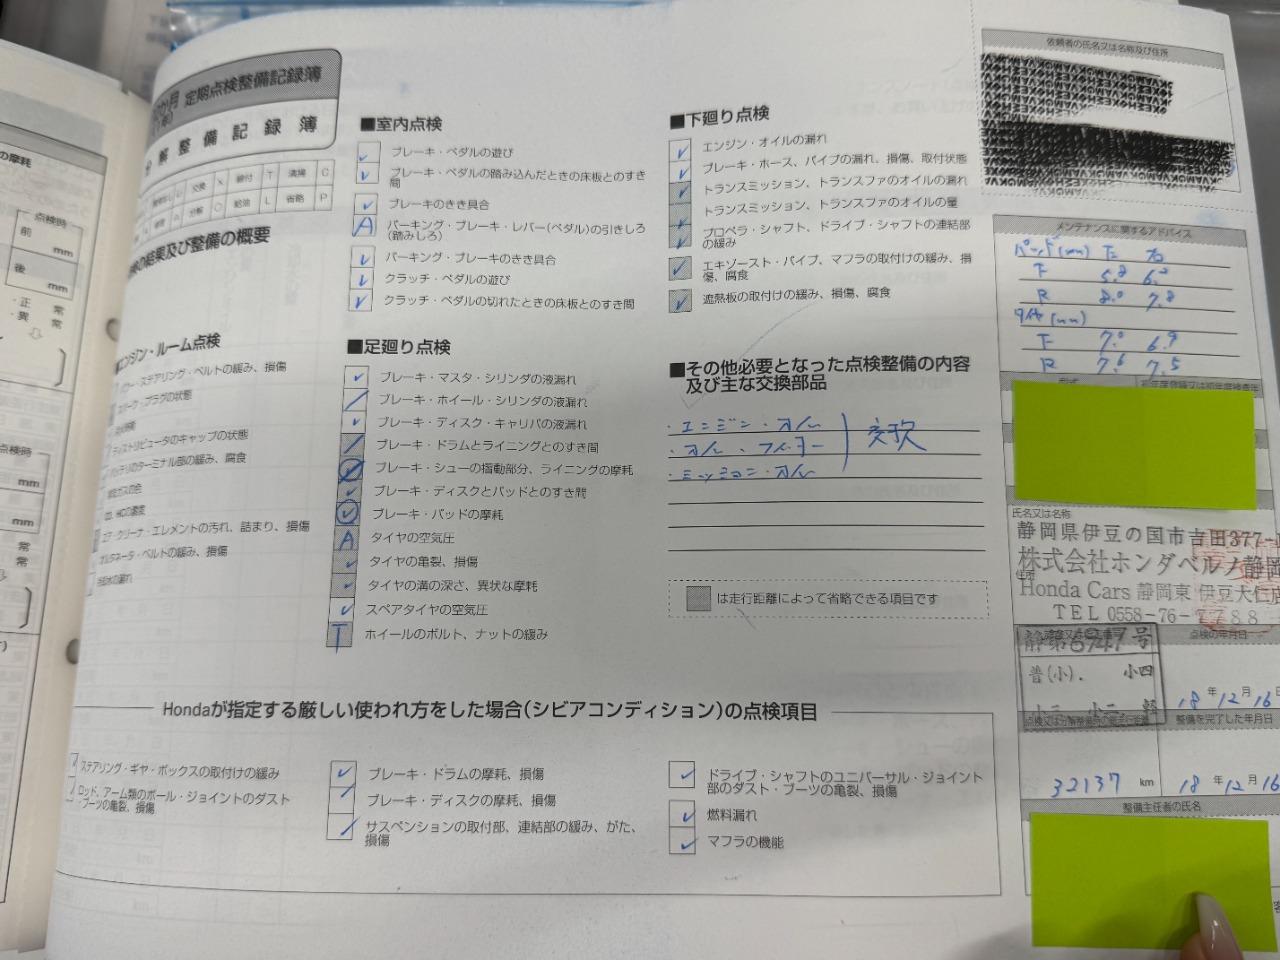 の摩耗
点検時
前
mm
後
mm
・正 常
・異 常
点検時
mm
mm
定期点検整備記録簿
分 解 整 備 記 録 簿
交換 X 締付 T 清掃 C
A 分解 O 給油 L 省略 P
結果及び整備の概要
エンジン・ルーム点検
パワー・ステアリング・ベルトの緩み、損傷
スパーク・プラグの状態
ディストリビュータのキャップの状態
バッテリのターミナル部の緩み、腐食
エア・クリーナ・エレメントの汚れ、詰まり、損傷
オルタネータ・ベルトの緩み、損傷
■室内点検
ブレーキ・ペダルの遊び
ブレーキ・ペダルの踏み込んだときの床板とのすき
間
ブレーキのきき具合
A パーキング・ブレーキ・レバー(ペダル)の引きしろ
(踏みしろ)
パーキング・ブレーキのきき具合
クラッチ・ペダルの遊び
クラッチ・ペダルの切れたときの床板とのすき間
■足廻り点検
ブレーキ・マスタ・シリンダの液漏れ
ブレーキ・ホイール・シリンダの液漏れ
ブレーキ・ディスク・キャリパの液漏れ
ブレーキ・ドラムとライニングとのすき間
ブレーキ・シューの摺動部分、ライニングの摩耗
ブレーキ・ディスクとパッドとのすき間
ブレーキ・パッドの摩耗
A タイヤの空気圧
タイヤの亀裂、損傷
タイヤの溝の深さ、異状な摩耗
スペアタイヤの空気圧
T ホイールのボルト、ナットの緩み
■下廻り点検
エンジン・オイルの漏れ
ブレーキ・ホース、パイプの漏れ、損傷、取付状態
トランスミッション、トランスファのオイルの漏れ
トランスミッション、トランスファのオイルの量
プロペラ・シャフト、ドライブ・シャフトの連結部
の緩み
エキゾースト・パイプ、マフラの取付けの緩み、損
傷、腐食
遮熱板の取付けの緩み、損傷、腐食
■その他必要となった点検整備の内容
及び主な交換部品
・エンジン・オイル
・オイル・フィルター 交換
・ミッション・オイル
は走行距離によって省略できる項目です
Hondaが指定する厳しい使われ方をした場合(シビアコンディション)の点検項目
ステアリング・ギヤ・ボックスの取付けの緩み
ロッド、アーム類のボール・ジョイントのダスト
・ブーツの亀裂、損傷
ブレーキ・ドラムの摩耗、損傷
ブレーキ・ディスクの摩耗、損傷
サスペンションの取付部、連結部の緩み、がた、
損傷
ドライブ・シャフトのユニバーサル・ジョイント
部のダスト・ブーツの亀裂、損傷
燃料漏れ
マフラの機能
依頼者の氏名又は名称及び住所
メンテナンスに関するアドバイス
パッド(mm) 左 右
F 5.8 6.2
R 8.0 7.8
タイヤ(mm)
F 7.0 6.9
R 7.6 7.5
氏名又は名称
静岡県伊豆の国市吉田377-1
株式会社ホンダベルノ静岡
住所
Honda Cars 静岡東 伊豆大仁店
TEL 0558-76-7788
点検の年月日
普(小). 小四
18 年 12 月 16
整備を完了した年月日
32137 km 18 年 12 月 16
整備主任者の氏名